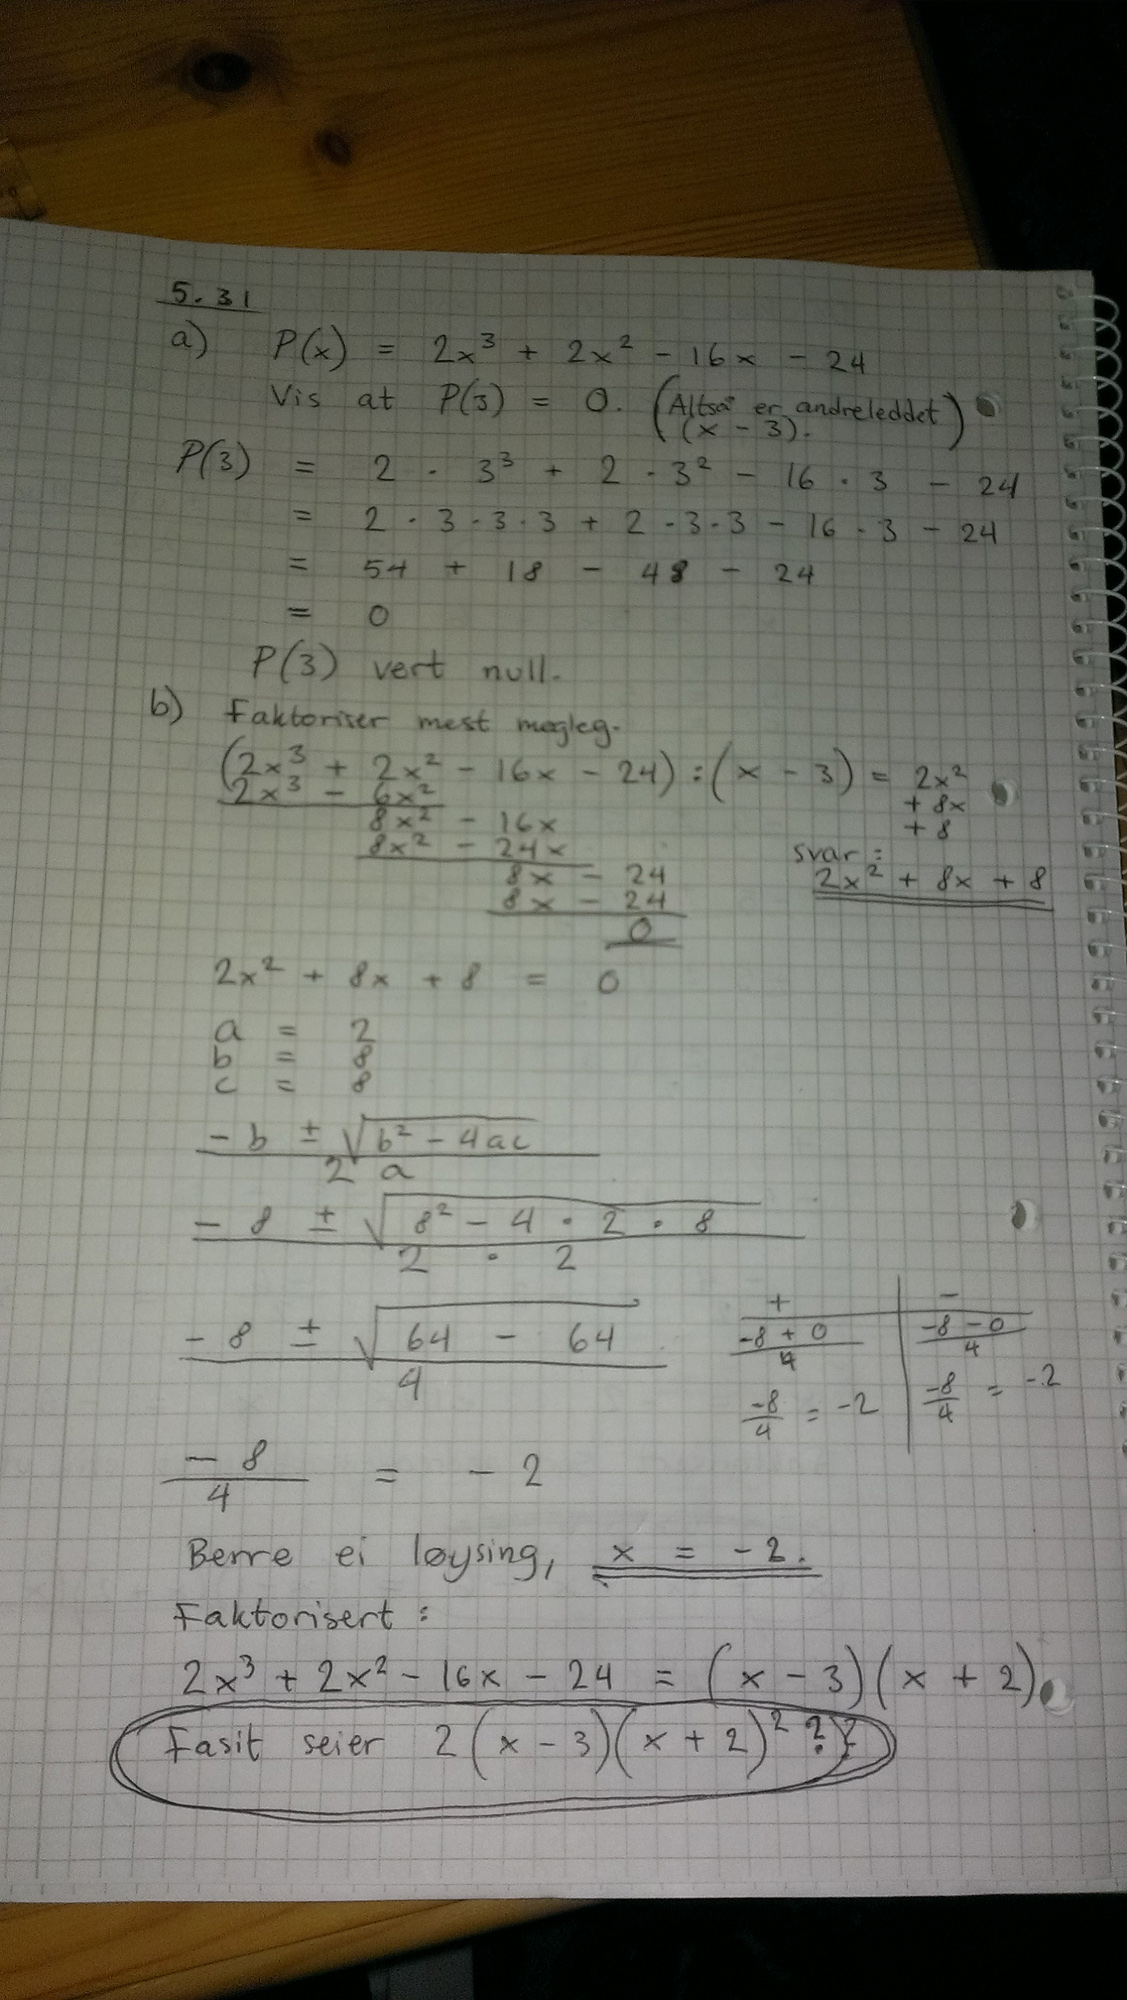 5.31
a) P(x) = 2x³ + 2x² - 16x - 24
Vis at P(3) = 0. (Altså er andreleddet
(x - 3).)
P(3) = 2 · 3³ + 2 · 3² - 16 · 3 - 24
= 2 · 3 · 3 · 3 + 2 · 3 · 3 - 16 · 3 - 24
= 54 + 18 - 48 - 24
= 0
P(3) vert null.
b) Faktoriser mest mogleg.
(2x³ + 2x² - 16x - 24) : (x - 3) = 2x²
2x³ - 6x²
+ 8x
8x² - 16x
+ 8
8x² - 24x
svar:
8x - 24
2x² + 8x + 8
8x - 24
0
2x² + 8x + 8 = 0
a = 2
b = 8
c = 8
- b ± √b² - 4ac
2 a
- 8 ± √8² - 4 · 2 · 8
2 · 2
+ -
- 8 ± √64 - 64
4
-8 + 0
4
-8 - 0
4
-8/4 = -2
-8/4 = -2
- 8
4
= - 2
Berre ei løysing, x = -2.
Faktorisert:
2x³ + 2x² - 16x - 24 = (x - 3)(x + 2).
Fasit seier 2(x - 3)(x + 2)² ??